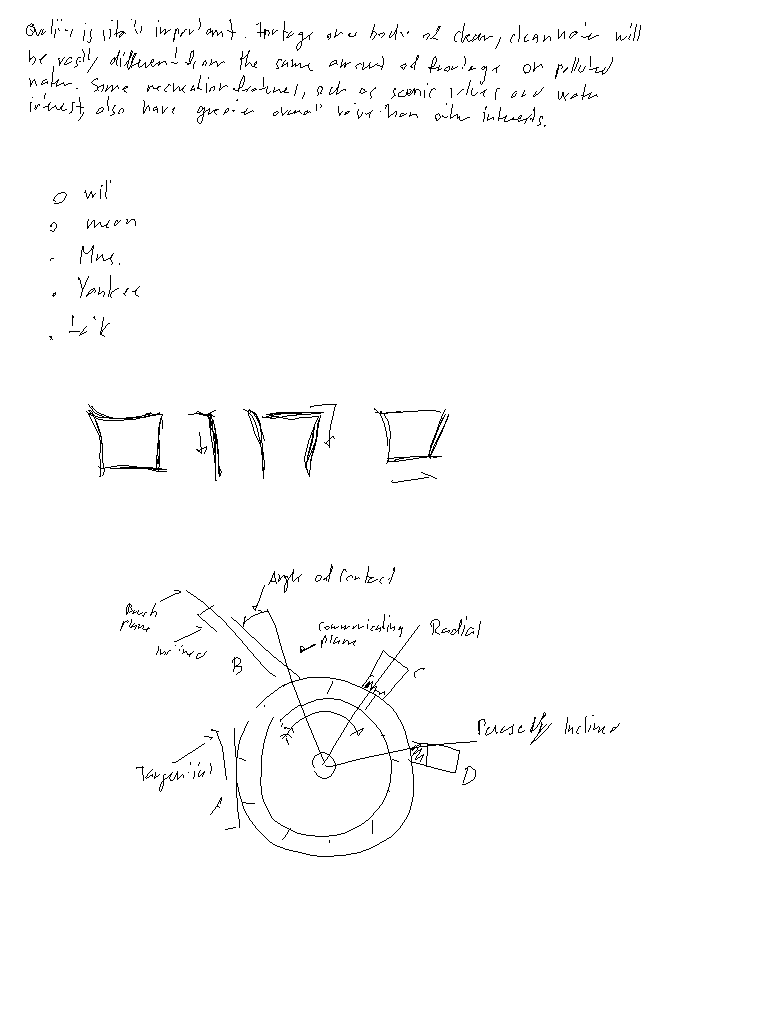 Quality is vitally important. Frontage on a body of clear, clean water will
be vastly different from the same amount of frontage on polluted
water. Some recreation features, such as scenic values and water
interest, also have greater overall value than other interests.
will
mean
Mrs.
Yankee
Angle of Contact
Brush
plane
Inclined
B
Commutating
plane
Radial
C
Reversely Inclined
D
Tangential
A